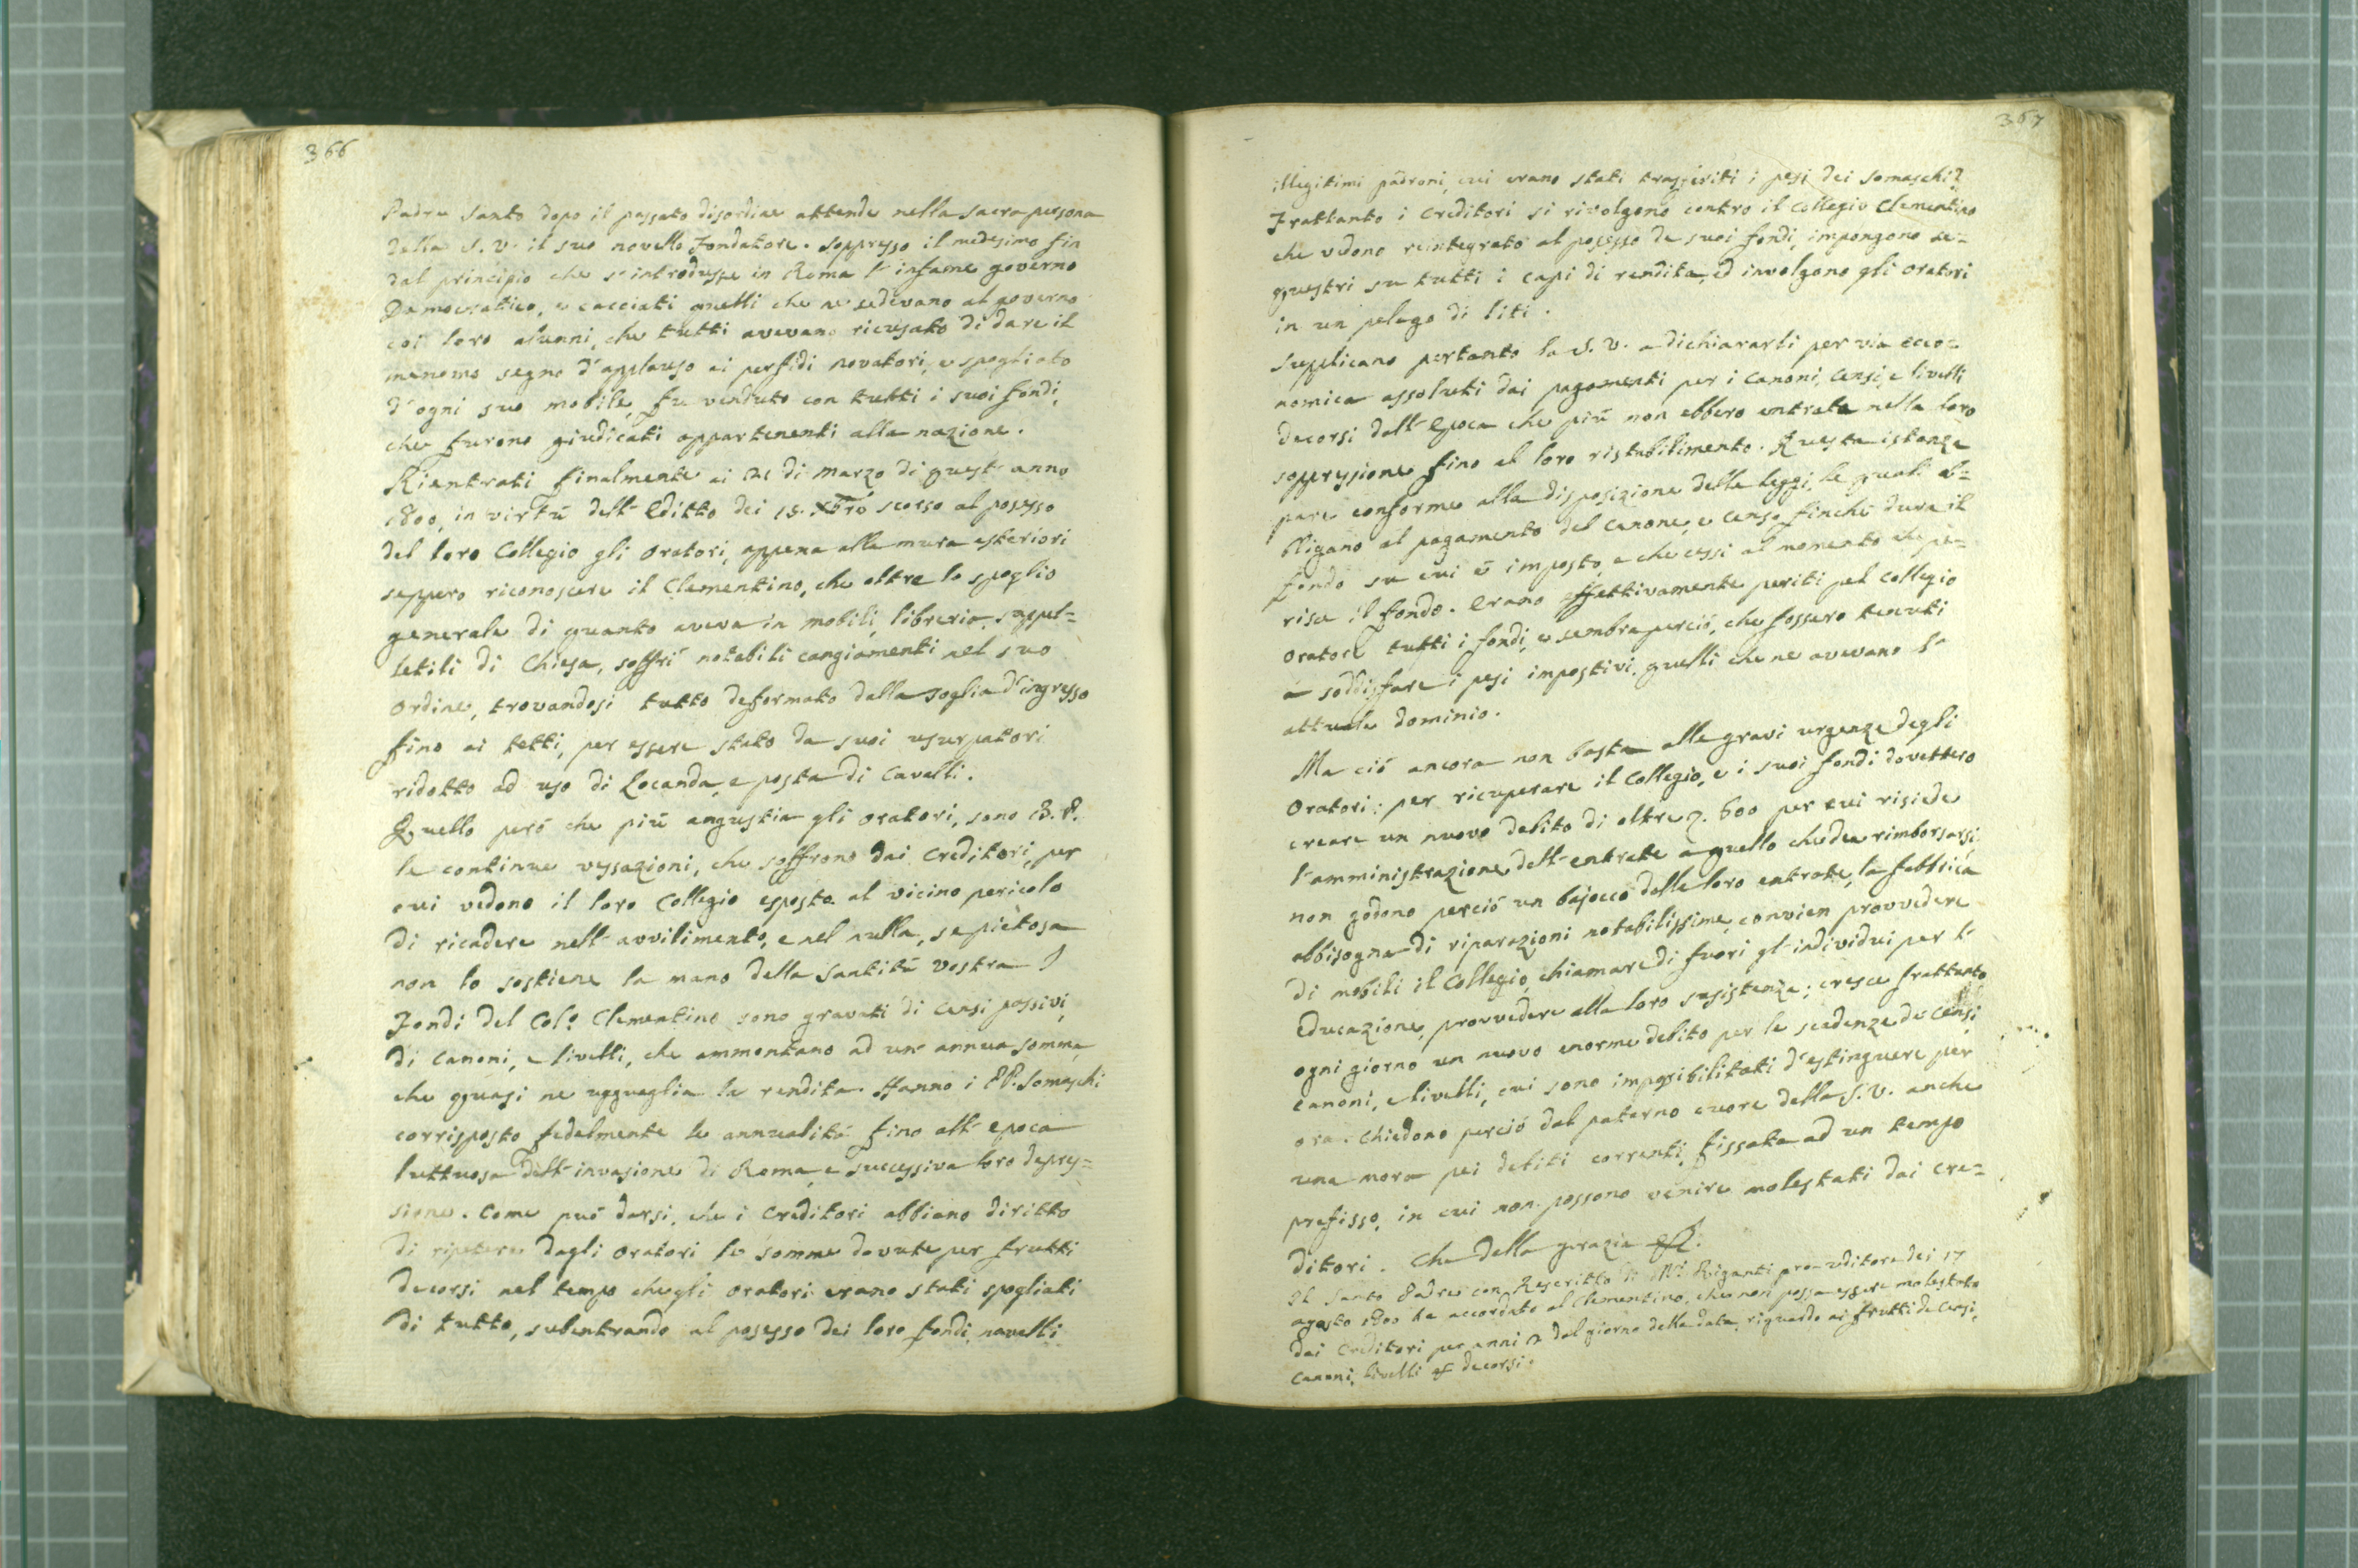 366
Padre Santo dopo il passato disordine attende nella sacra persona
della S. V. il suo novello Fondatore. Soppresso il medesimo fin
dal principio che s'introdusse in Roma l'infame governo
Democratico, e cacciati quelli che ne sedevano al governo
coi loro alunni, che tutti avevano ricusato di dare il
menomo segno d'applauso ai perfidi novatori, e spogliato
d'ogni suo mobile, fu venduto con tutti i suoi fondi,
che furono giudicati appartenenti alla nazione.
Rientrati finalmente ai di Marzo di quest'anno
1800, in virtù dell'Editto dei 15. Xbre scorso al possesso
del loro Collegio gli Oratori, appena alle mura esteriori
seppero riconoscere il Clementino, che oltre lo spoglio
generale di quanto aveva in mobili, libreria, suppel=
letili di Chiesa, soffrì notabili cangiamenti nel suo
ordine, trovandosi tutto deformato dalla soglia d'ingresso
fino ai tetti, per essere stato da suoi usurpatori
ridotto ad uso di Locanda, e posta di Cavalli.
Quello però che più angustia gli Oratori, sono B. P.
le continue vessazioni, che soffrono dai Creditori, per
cui vedono il loro Collegio esposto al vicino pericolo
di ricadere nell'avvilimento, e nel nulla, se pietosa
non lo sostiene la mano della Santità Vostra I
Fondi del Col.o Clementino sono gravati di Censi passivi,
di Canoni, e livelli, che ammontano ad un'annua somma,
che quasi ne uguaglia la rendita. Hanno i PP. Somaschi
corrisposto fedelmente le annualità fino all'epoca
luttuosa dell'invasione di Roma, e successiva loro depres=
sione. Come può darsi, che i Creditori abbiano diritto
di ripetere dagli Oratori le somme dovute per frutti
decorsi nel tempo che gli Oratori erano stati spogliati
di tutto, subentrando al posesso dei loro fondi novelli
367
illegitimi padroni, cui erano stati trasferiti i pesi dei Somaschi?
Frattanto i Creditori si rivolgono contro il Collegio Clementino
che vedono reintegrato al posesso de suoi fondi, impongono se=
questri su tutti i capi di rendita, ed involgono gli Oratori
in un pelago di liti.
Supplicano pertanto la S. V. a dichiararli per via eco=
nomica assoluti dai pagamenti per i Canoni, Censi, e livelli
decorsi dall'Epoca che più non ebbero entrata nella loro
soppressione fino al loro ristabilimento. Questa istanza
pare conforme alla disposizione delle leggi, le quali ob=
bligano al pagamento del Canone, e censo finchè dura il
fondo su cui è imposto, e che cessi al momento che pe=
risce il fondo. Erano effettivamente periti pel Collegio
Oratore tutti i fondi, e sembra perciò, che fossero tenuti
a soddisfare i pesi impostivi quelli che ne avevano lo
attuale dominio.
Ma ciò ancora non basta alle gravi urgenze degli
Oratori: per ricuperare il Collegio, e i suoi fondi dovettero
creare un nuovo debito di oltre 600 per cui risiede
l'amministrazione dell'entrate a quello che dee rimborsarsi
non godono perciò un bajocco delle loro entrate, la fabbrica
abbisogna di riparazioni notabilissime, convien provvedere
di mobili il Collegio, chiamare di fuori gl'individui per l'
Educazione, provvedere alla loro susistenza; cresce frattanto
ogni giorno un nuovo enorme debito per le scadenze de Censi
canoni, e livelli, cui sono impossibilitati d'estinguere per
ora. Chiedono perciò dal paterno cuore della S. V. anche
una mora pei debiti correnti, fissata ad un tempo
prefisso, in cui non possono venire molestati dai cre=
ditori. Che della grazia
Il Santo Padre con Rescritto di M.r Riganti pro-uditore dei 17
agosto 1800 ha accordato al Clementino, che non possa essere molestato
dai Creditori per anni 2 dal giorno della data, riguardo ai frutti de Censi,
Canoni, livelli decorsi.